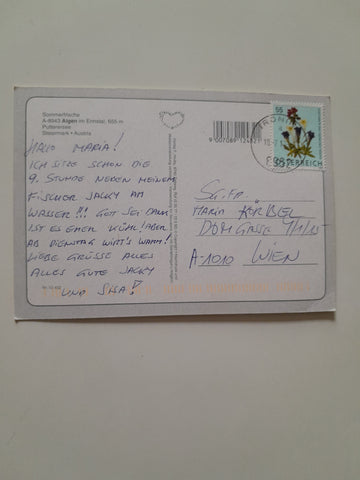 Sommerfrische
A-8943 Aigen im Ennstal, 665 m
Putterersee
Steiermark • Austria
HALLO MARIA!
ICH SITZE SCHON DIE
9. STUNDE NEBEN MEINEM
FISCHER JACKY AM
WASSER!!! GOT SEI DANK
IST ES EHER KÜHL! ABER
AB DIENSTAG WIRT'S WARM!
LIEBE GRÜSSE ALLES
ALLES GUTE JACKY
UND SISA!
9007089
55
ÖSTERREICH
SG. FR.
MARIA
DOMGASSE
A-1010 WIEN